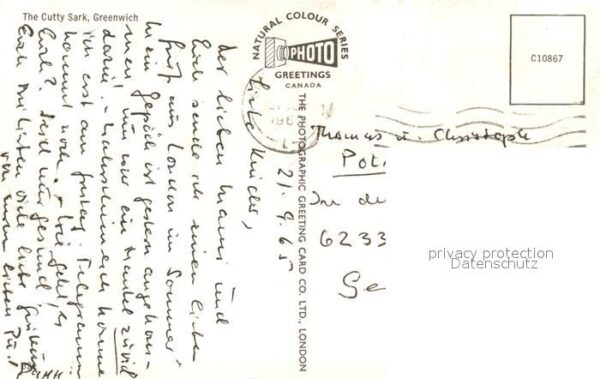 The Cutty Sark, Greenwich
NATURAL COLOUR SERIES
PHOTO
GREETINGS
CANADA
C10867
THE PHOTOGRAPHIC GREETING CARD CO. LTD., LONDON
Liebe Kinder, 21.9.65
der lieben Mami und
Euch sende ich einen lieben
Gruß aus London im Sommer
Mein Gepäck ist gestern angekom-
men, nur war ein Mantel zuviel
darin! - Wahrscheinlich komme
ich erst am Freitag. Telegramm
kommt noch. - Wie geht's
Euch? Seid Ihr gesund?
Euch viele liebe Grüße
von eurem lieben
Thomas u. Christoph
Pot
In de
6233
privacy protection
Datenschutz